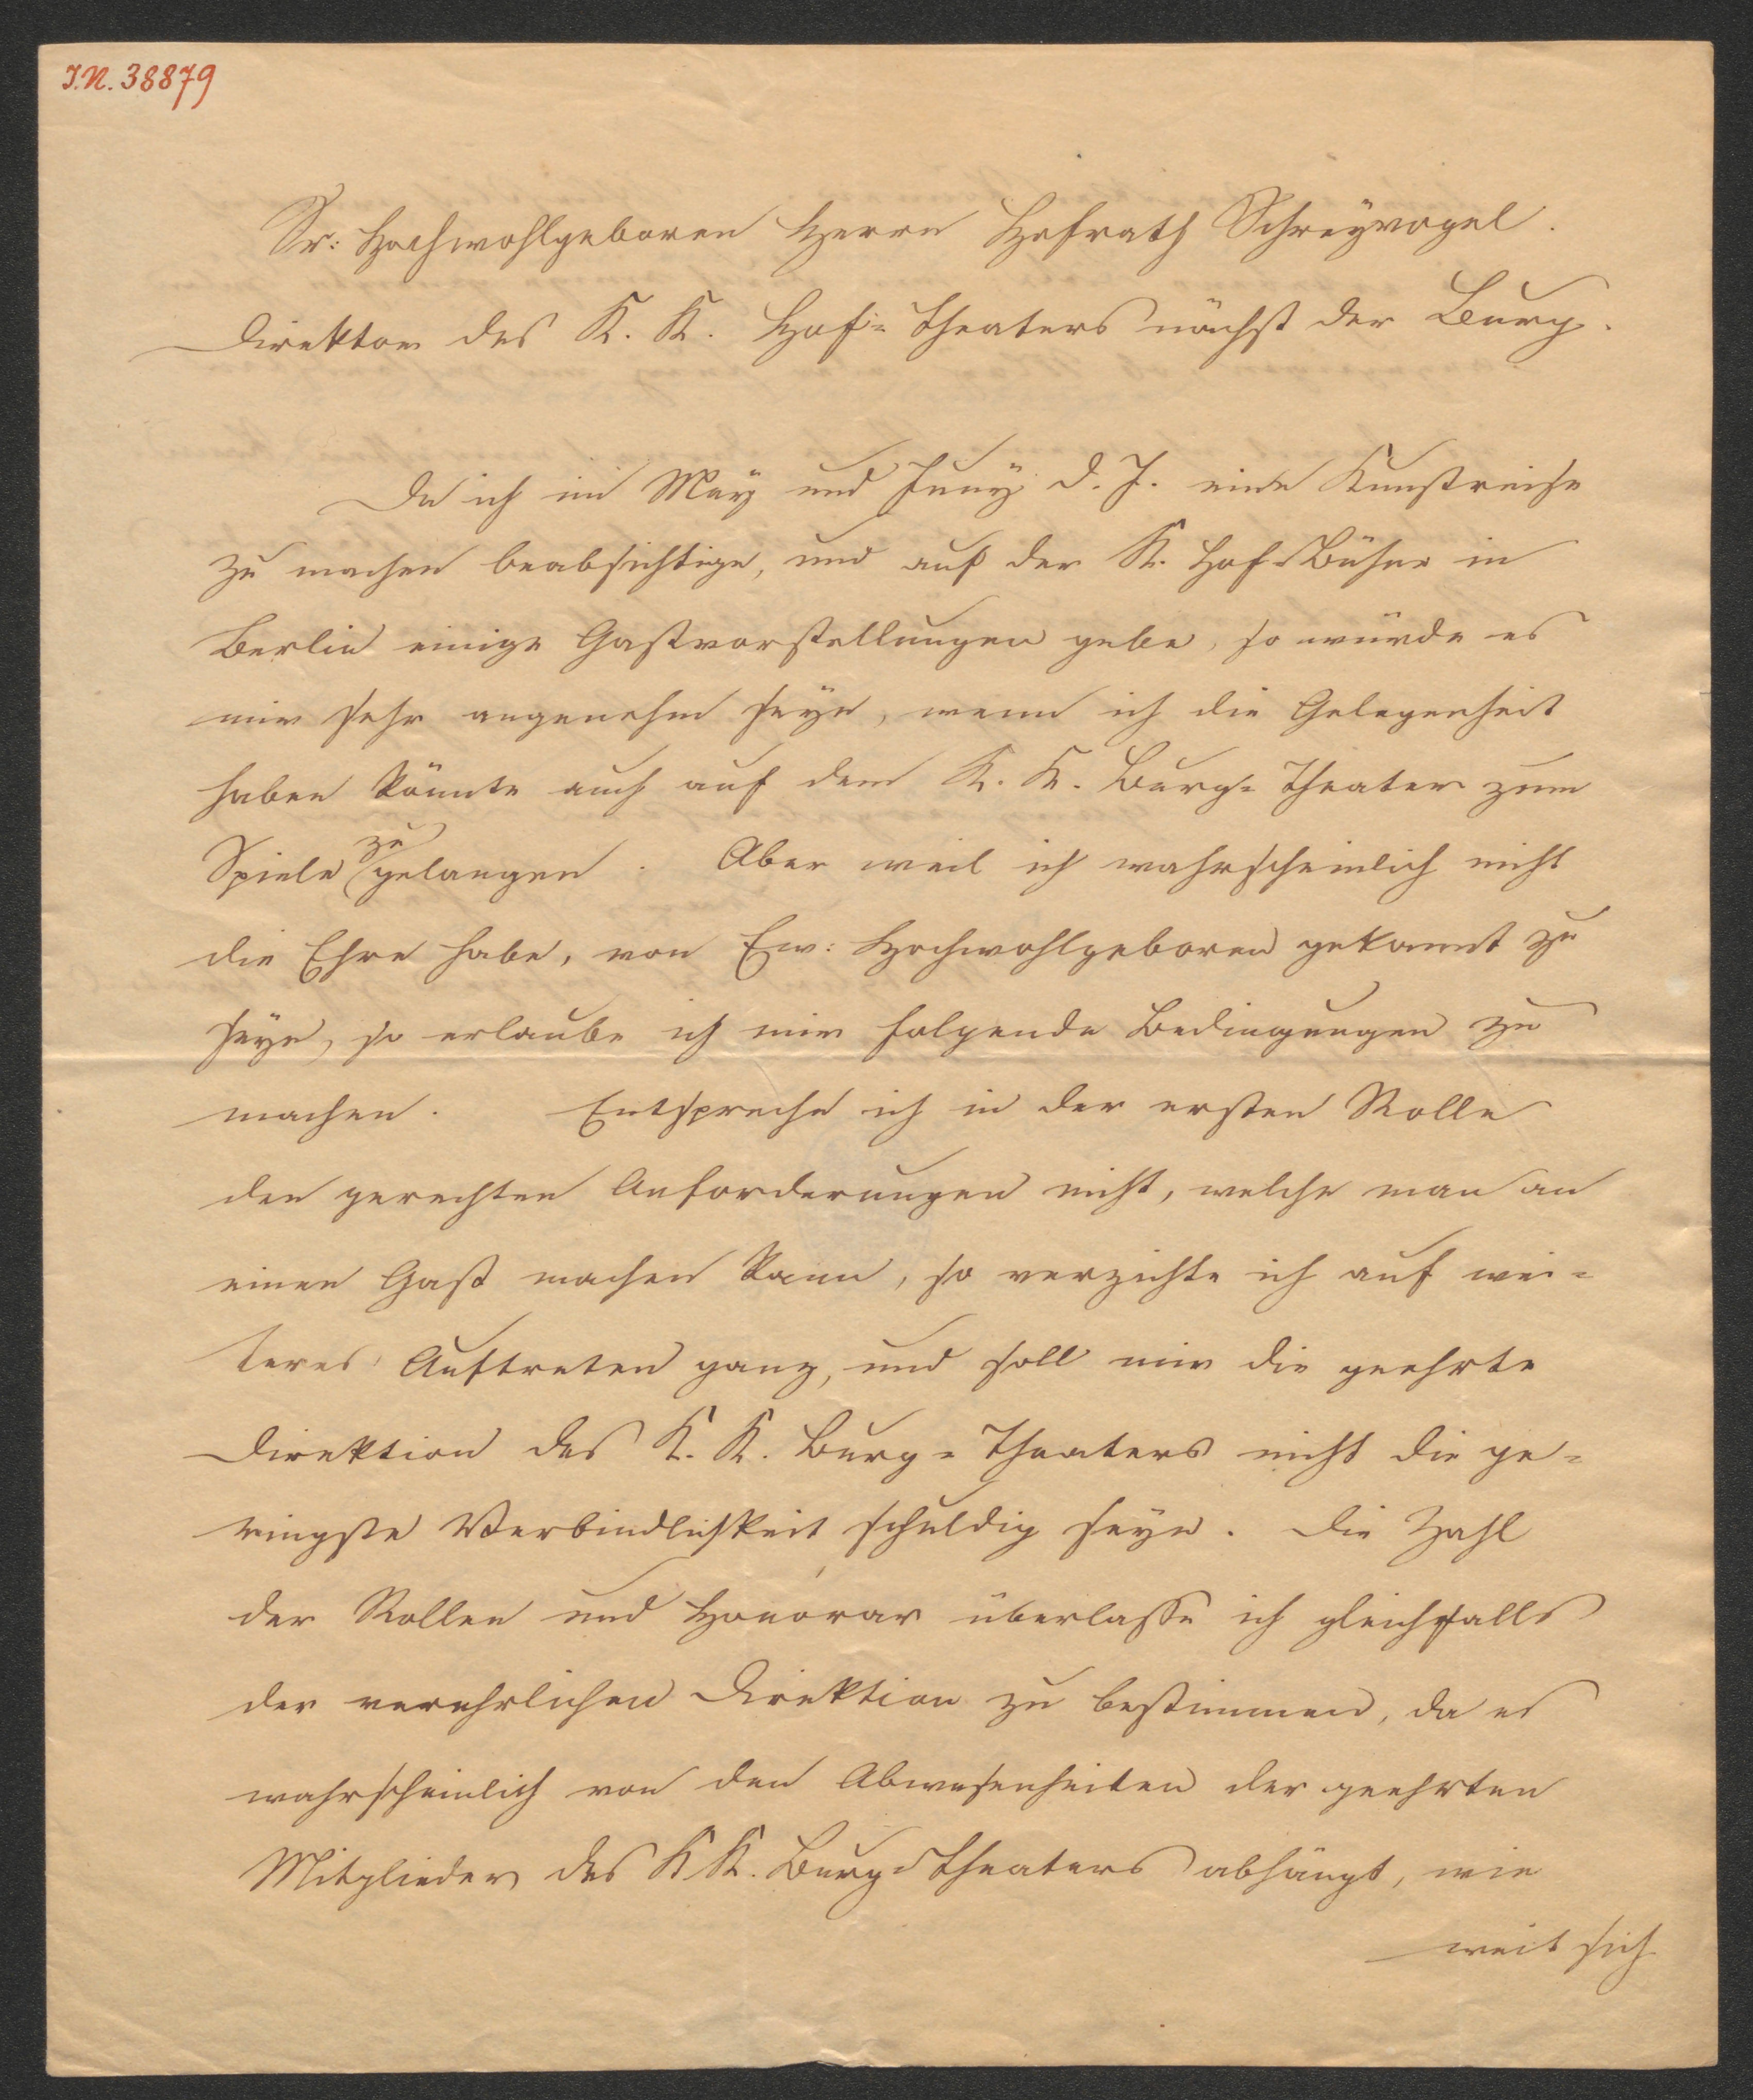 I.N. 38879
Sr: Hochwohlgeboren Herrn Hofrath Schreyvogel.
Direktor des K. K. Hof=Theaters nächst der Burg.
Da ich im May und Juny d. J. eine Kunstreise
zu machen beabsichtige, und auf der K. Hof=Bühne in
Berlin einige Gastvorstellungen gebe, so würde es
mir sehr angenehm seyn, wenn ich die Gelegenheit
haben könnte auch auf dem K. K. Burg=Theater zum
Spiele zu gelangen. Aber weil ich wahrscheinlich nicht
die Ehre habe, von Ew: Hochwohlgeboren gekannt zu
seyn, so erlaube ich mir folgende Bedingungen zu
machen. Entspreche ich in der ersten Rolle
den gerechten Anforderungen nicht, welche man an
einen Gast machen kann, so verzichte ich auf wei=
teres Auftreten ganz, und soll mir die geehrte
Direktion des K. K. Burg=Theaters nicht die ge=
ringste Verbindlichkeit schuldig seyn. Die Zahl
der Rollen und Honorar überlasse ich gleichfalls
der verehrlichen Direktion zu bestimmen, da es
wahrscheinlich von den Abwesenheiten der geehrten
Mitglieder des K K. Burg=Theaters abhängt, wie
weit sich